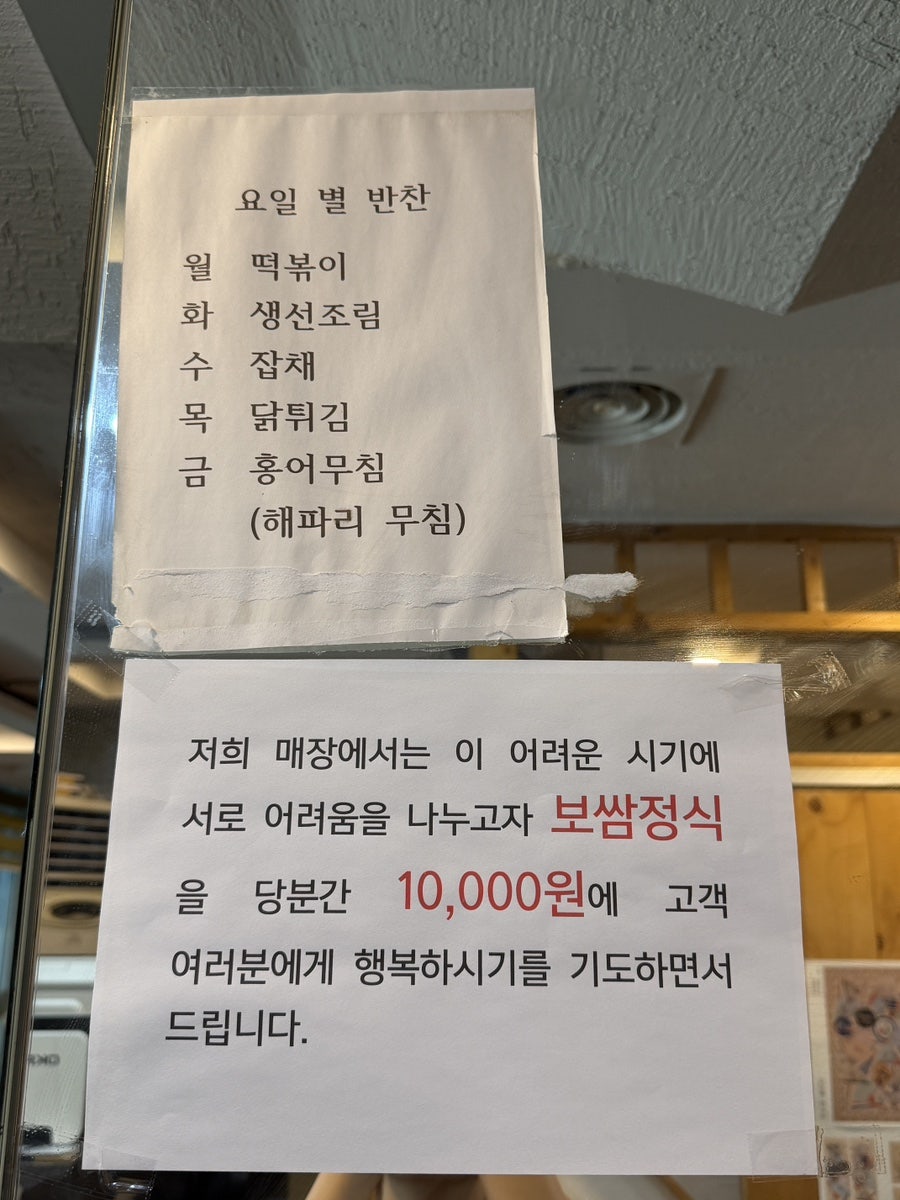 요일 별 반찬
월 떡볶이
화 생선조림
수 잡채
목 닭튀김
금 홍어무침
(해파리 무침)
저희 매장에서는 이 어려운 시기에
서로 어려움을 나누고자 보쌈정식
을 당분간 10,000원에 고객
여러분에게 행복하시기를 기도하면서
드립니다.